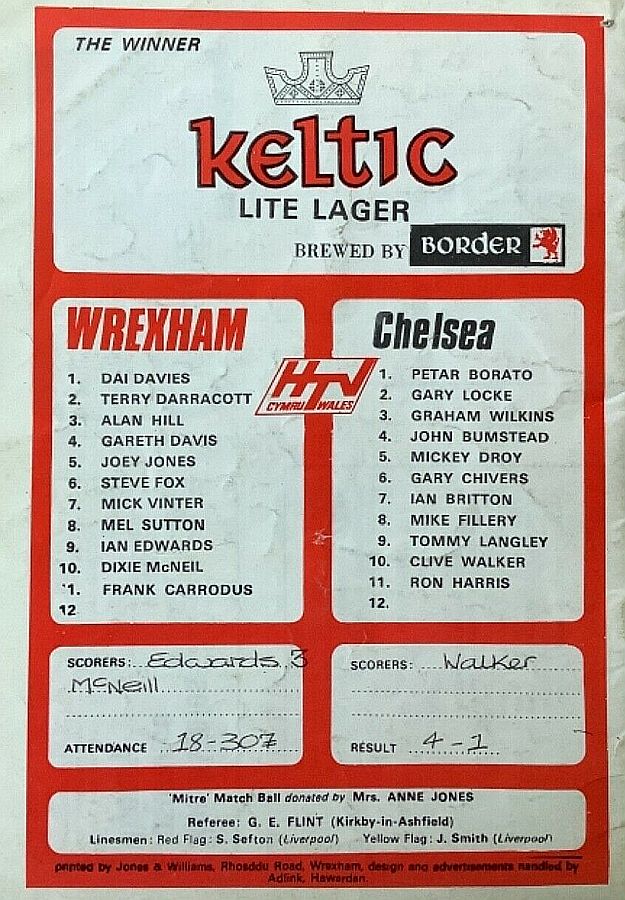 THE WINNER
keltic
LITE LAGER
BREWED BY BORDER
WREXHAM
1. DAI DAVIES
2. TERRY DARRACOTT
3. ALAN HILL
4. GARETH DAVIS
5. JOEY JONES
6. STEVE FOX
7. MICK VINTER
8. MEL SUTTON
9. IAN EDWARDS
10. DIXIE McNEIL
'1. FRANK CARRODUS
12
HTV
CYMRU WALES
Chelsea
1. PETAR BORATO
2. GARY LOCKE
3. GRAHAM WILKINS
4. JOHN BUMSTEAD
5. MICKEY DROY
6. GARY CHIVERS
7. IAN BRITTON
8. MIKE FILLERY
9. TOMMY LANGLEY
10. CLIVE WALKER
11. RON HARRIS
12.
SCORERS: Edwards 3
McNeill
ATTENDANCE 18-307
SCORERS: Walker
RESULT 4-1
'Mitre' Match Ball donated by Mrs. ANNE JONES
Referee: G. E. FLINT (Kirkby-in-Ashfield)
Linesmen: Red Flag: S. Sefton (Liverpool) Yellow Flag: J. Smith (Liverpool)
printed by Jones & Williams, Rhosddu Road, Wrexham, design and advertisements handled by
Adlink, Hawarden.